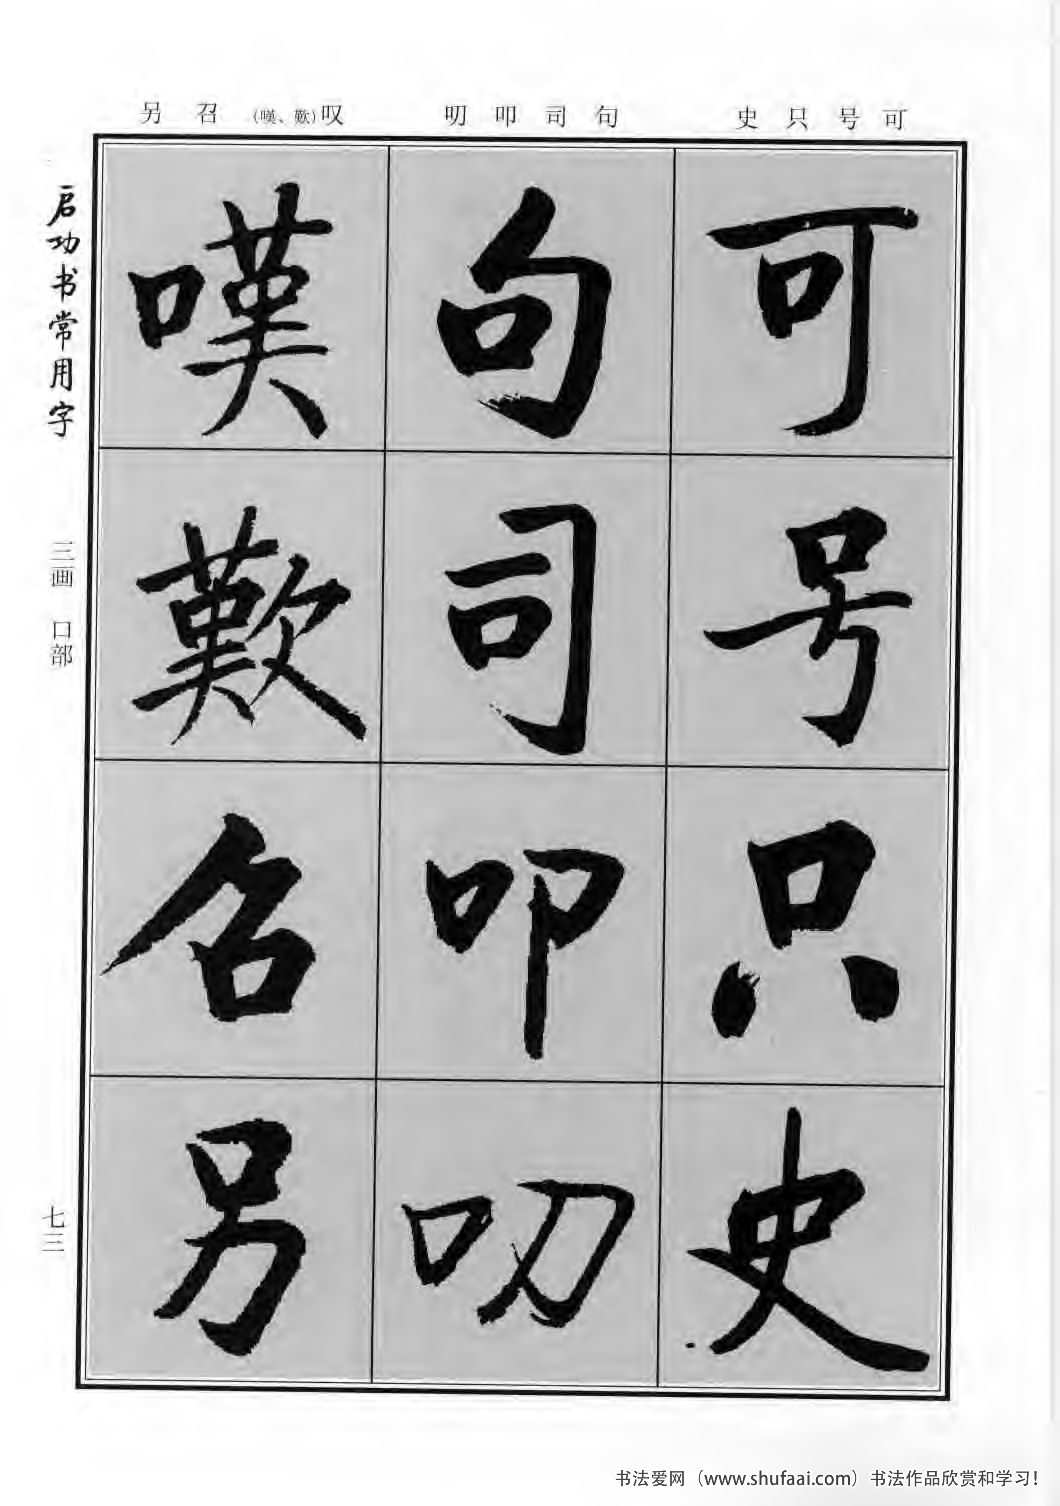 可号只史
句司叩叨
叹(嘆、歎)召另
可
号
只
史
句
司
叩
叨
嘆
歎
召
另
启功书常用字
三画 口部
七三
书法爱网（www.shufaai.com）书法作品欣赏和学习！